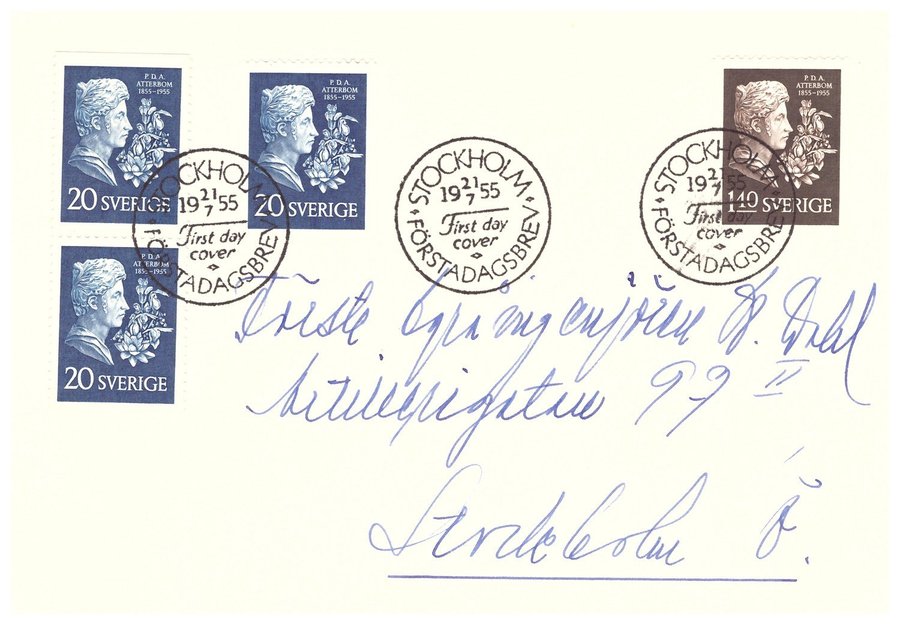 P.D.A.
ATTERBOM
1855–1955
20 SVERIGE
P.D.A.
ATTERBOM
1855–1955
20 SVERIGE
P.D.A.
ATTERBOM
1855–1955
1.40 SVERIGE
STOCKHOLM
19 21/7 55
First day
cover
FÖRSTADAGSBREV
STOCKHOLM
19 21/7 55
First day
cover
FÖRSTADAGSBREV
STOCKHOLM
19 21/7 55
First day
cover
FÖRSTADAGSBREV
P.D.A.
ATTERBOM
1855–1955
20 SVERIGE
Förste Dahl
Artillerigatan II
Stockholm Ö.